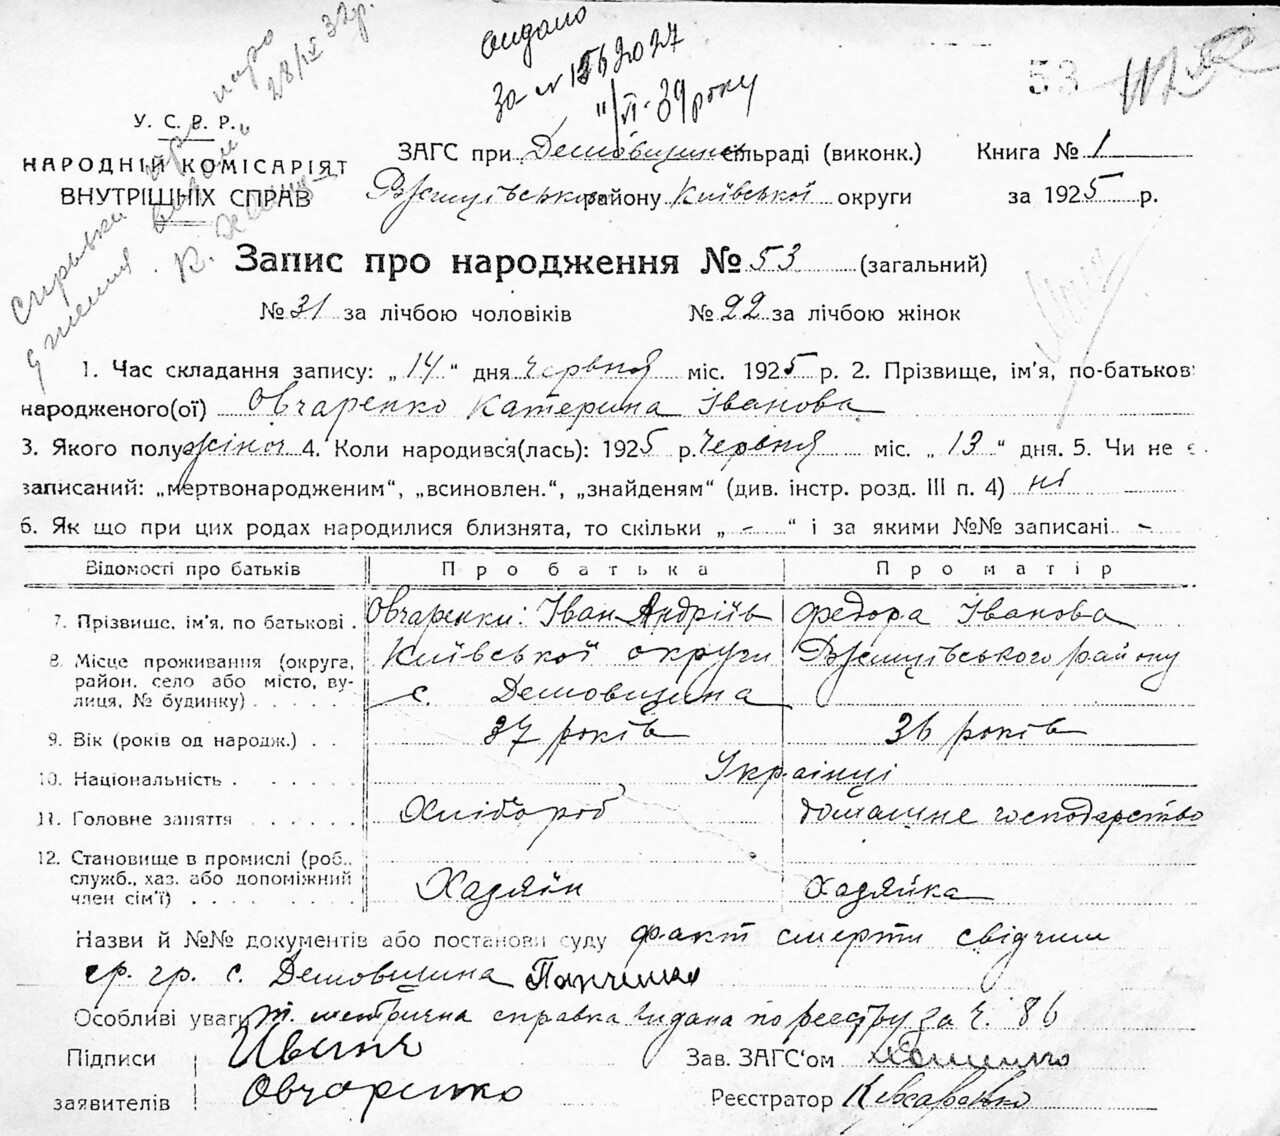 видано
за № 1562027
"/ІІ-39 року
28/ІХ 32р.
53
У. С. В. Р.
НАРОДНІЙ КОМІСАРІЯТ
ВНУТРІШНІХ СПРАВ
ЗАГС при Демовщинс. сільраді (виконк.) Книга № 1
Ржищівськ. району Київської округи за 1925 р.
Запис про народження № 53 (загальний)
№ 31 за лічбою чоловіків № 22 за лічбою жінок
1. Час складання запису: „14" дня червня міс. 1925 р. 2. Прізвище, ім'я, по-батькові
народженого(ої) Овчаренко Катерина Іванова
3. Якого полу жіноч 4. Коли народився(лась): 1925 р. червня міс. „13" дня. 5. Чи не є
записаний: „мертвонародженим", „всиновлен.", „знайденям" (див. інстр. розд. III п. 4) ні
6. Як що при цих родах народилися близнята, то скільки „ - " і за якими №№ записані -
Відомості про батьків Про батька Про матір
7. Прізвище, ім'я, по батькові . Овчаренки: Іван Андріїв Федора Іванова
8. Місце проживання (округа, район, село або місто, вулиця, № будинку) Київської округи Ржищівського району
с. Демовщина
9. Вік (років од народж.) . . 37 років 36 років
10. Національність Українці
11. Головне заняття Хлібороб домашнє господарство
12. Становище в промислі (роб., служб., хаз. або допоміжний член сім'ї) Хазяїн Хазяйка
Назви й №№ документів або постанови суду факт смерти свідчили
гр. гр. с. Демовщина
Особливі уваги метрична справка видана по реєстру за ч. 86
Підписи Иван Зав. ЗАГС'ом
заявителів Овчаренко Реєстратор